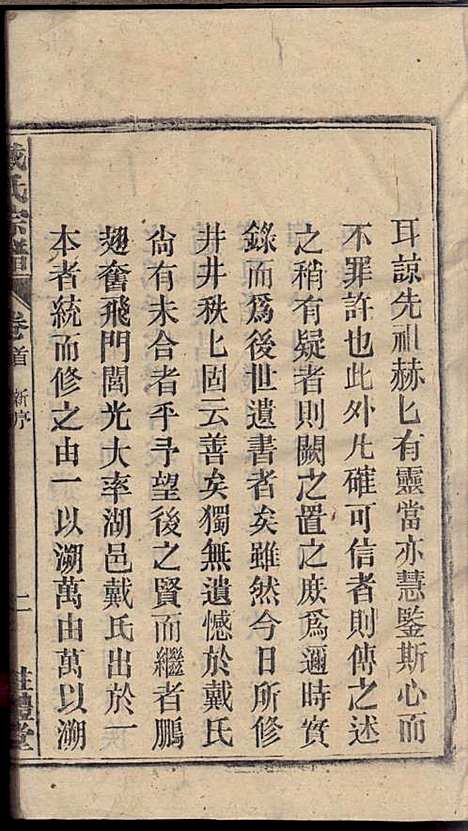 耳諒先祖赫匕有靈當亦慧鑒斯心而
不罪許也此外凢確可信者則傳之述
之稍有疑者則闕之置之庶爲邇時實
錄而爲後世遺書者矣雖然今日所修
井井秩匕固云善矣獨無遺憾於戴氏
尙有未合者乎予望後之賢而繼者鵬
翅奮飛門閭光大率湖邑戴氏出於一
本者統而修之由一以溯萬由萬以溯
戴氏宗譜
卷首 新序
二